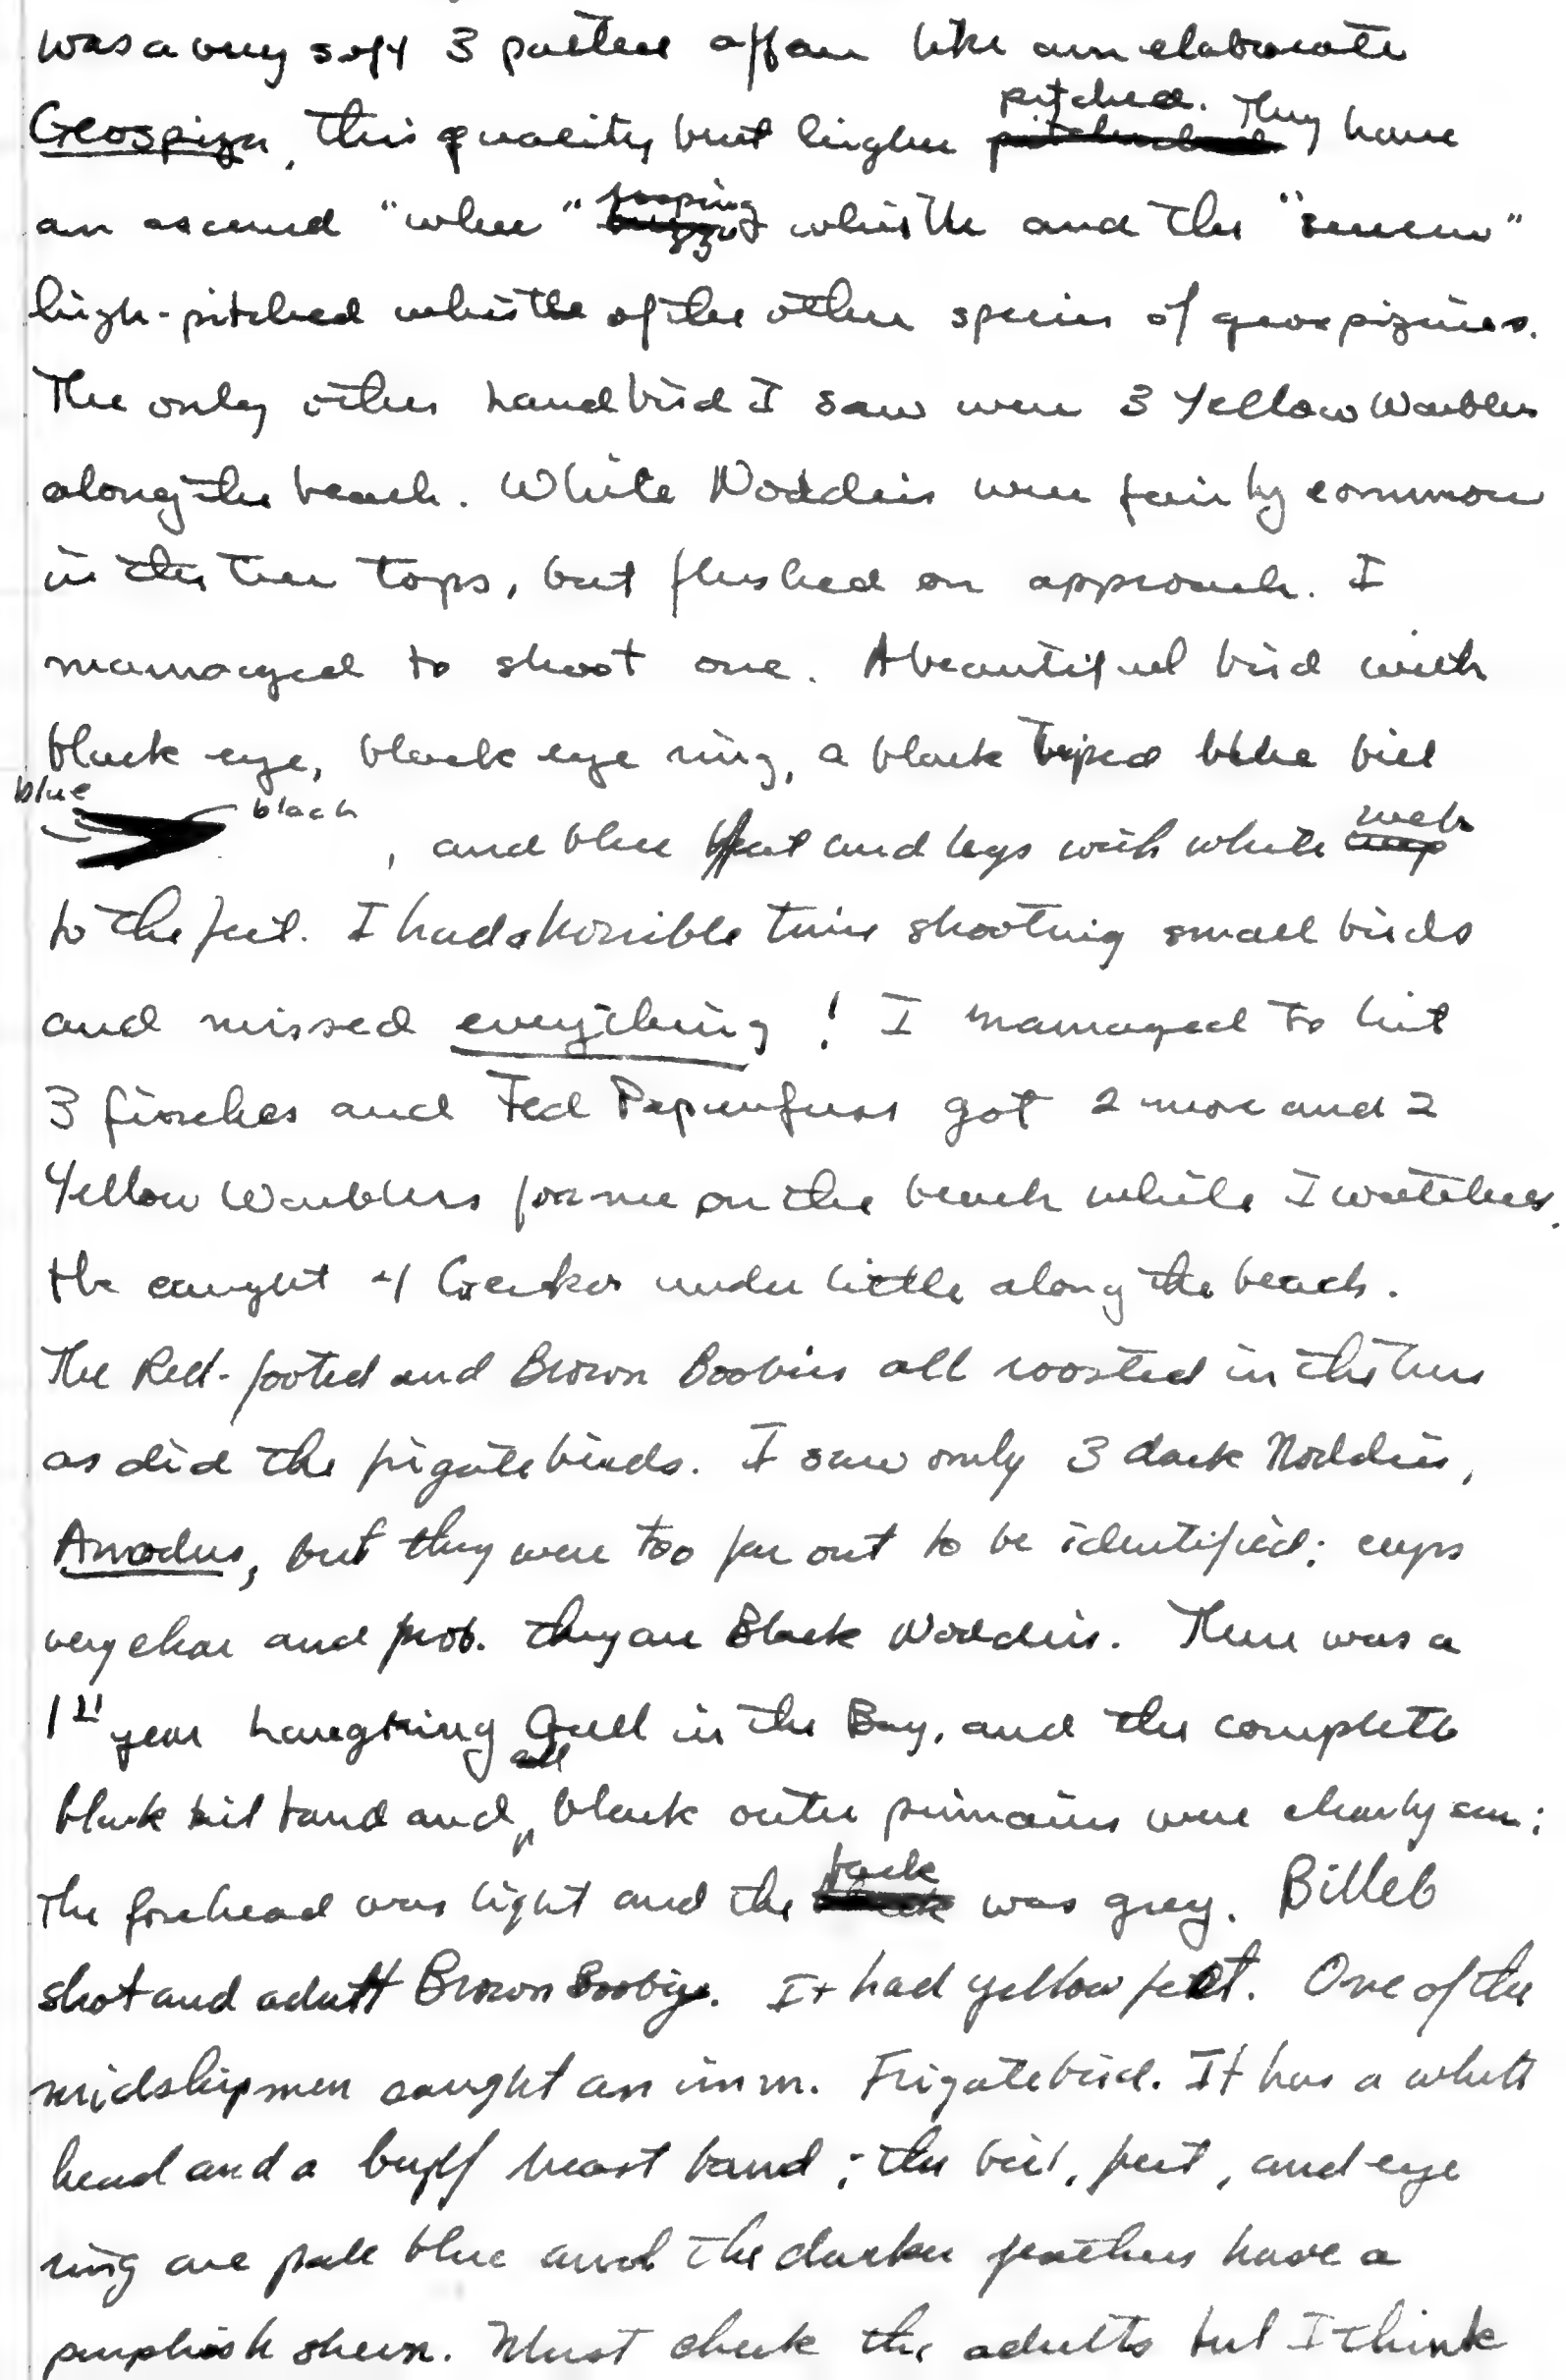 was a very soft 3 parted affair like an elaborate
Geospiza, this quality but higher pitched. They have
an ascend "whee" whistle and the
high-pitched whistle of the other species of geospizines.
The only other land bird I saw were 3 Yellow Warblers
along the beach. White Noddies were fairly common
in the tree tops, but flushed on approach. I
managed to shoot one. A beautiful bird with
black eye, black eye ring, a black tiped blue bill
blue black
, and blue feet and legs with white web
to the feet. I had a horrible time shooting small birds
and missed everything! I managed to hit
3 finches and Ted Papenfuss got 2 more and 2
Yellow Warblers for me on the beach while I watched.
He caught 4 Geckos under litter along the beach.
The Red-footed and Brown Boobies all roosted in the trees
as did the frigatebirds. I saw only 3 dark Noddies,
Anous, but they were too far out to be identified; caps
very clear and prob. they are Black Noddies. There was a
1st year Laughing Gull in the Bay, and the complete
black tail band and all black outer primaries were clearly seen;
The forehead was light and the back was grey. Billeb
shot and adult Brown Booby. It had yellow feet. One of the
midshipmen caught an imm. Frigatebird. It has a white
head and a buff breast band; the bill, feet, and eye
ring are pale blue and the darker feathers have a
purplish sheen. Must check the adults but I think